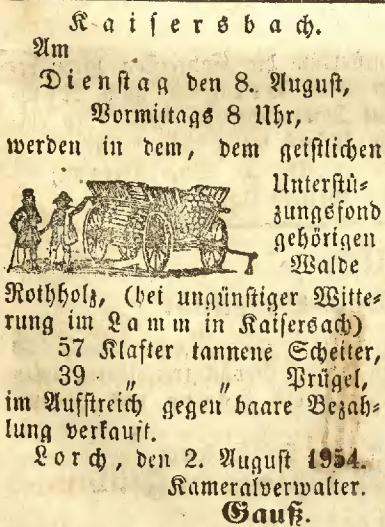 Kaisersbach.
Am
Dienstag den 8. August,
Vormittags 8 Uhr,
werden in dem, dem geistlichen
Unterstü-
zungsfond
gehörigen
Walde
Rothholz, (bei ungünstiger Witte-
rung im Lamm in Kaisersach)
57 Klafter tannene Scheiter,
39 „ „ Prügel,
im Aufstreich gegen baare Bezah-
lung verkauft.
Lorch, den 2. August 1954.
Kameralverwalter.
Gauß.